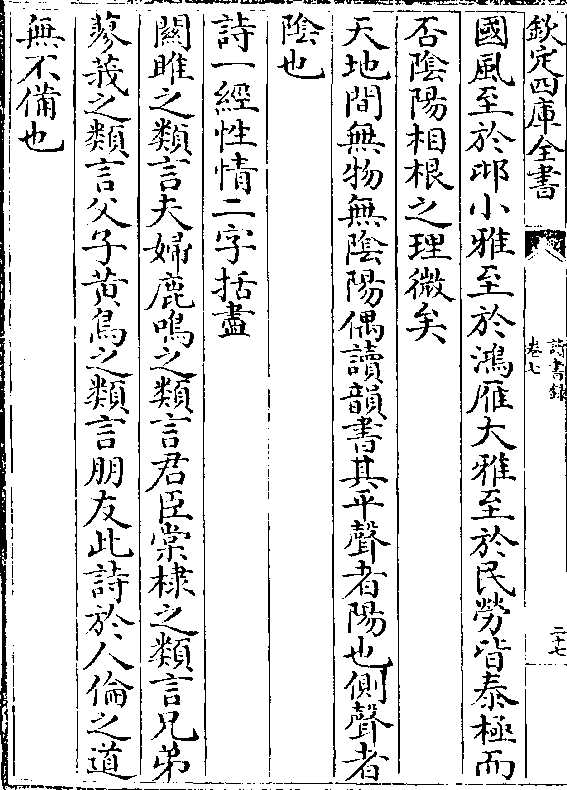 欽定四庫全書
讀書録
卷七
二十七
國風至於邶小雅至於鴻雁大雅至於民勞皆泰極而
否陰陽相根之理微矣
天地間無物無陰陽偶讀韻書其平聲者陽也側聲者
陰也
詩一經性情二字括盡
關雎之類言夫婦鹿鳴之類言君臣棠棣之類言兄弟
蓼莪之類言父子黃鳥之類言朋友此詩於人倫之道
無不備也